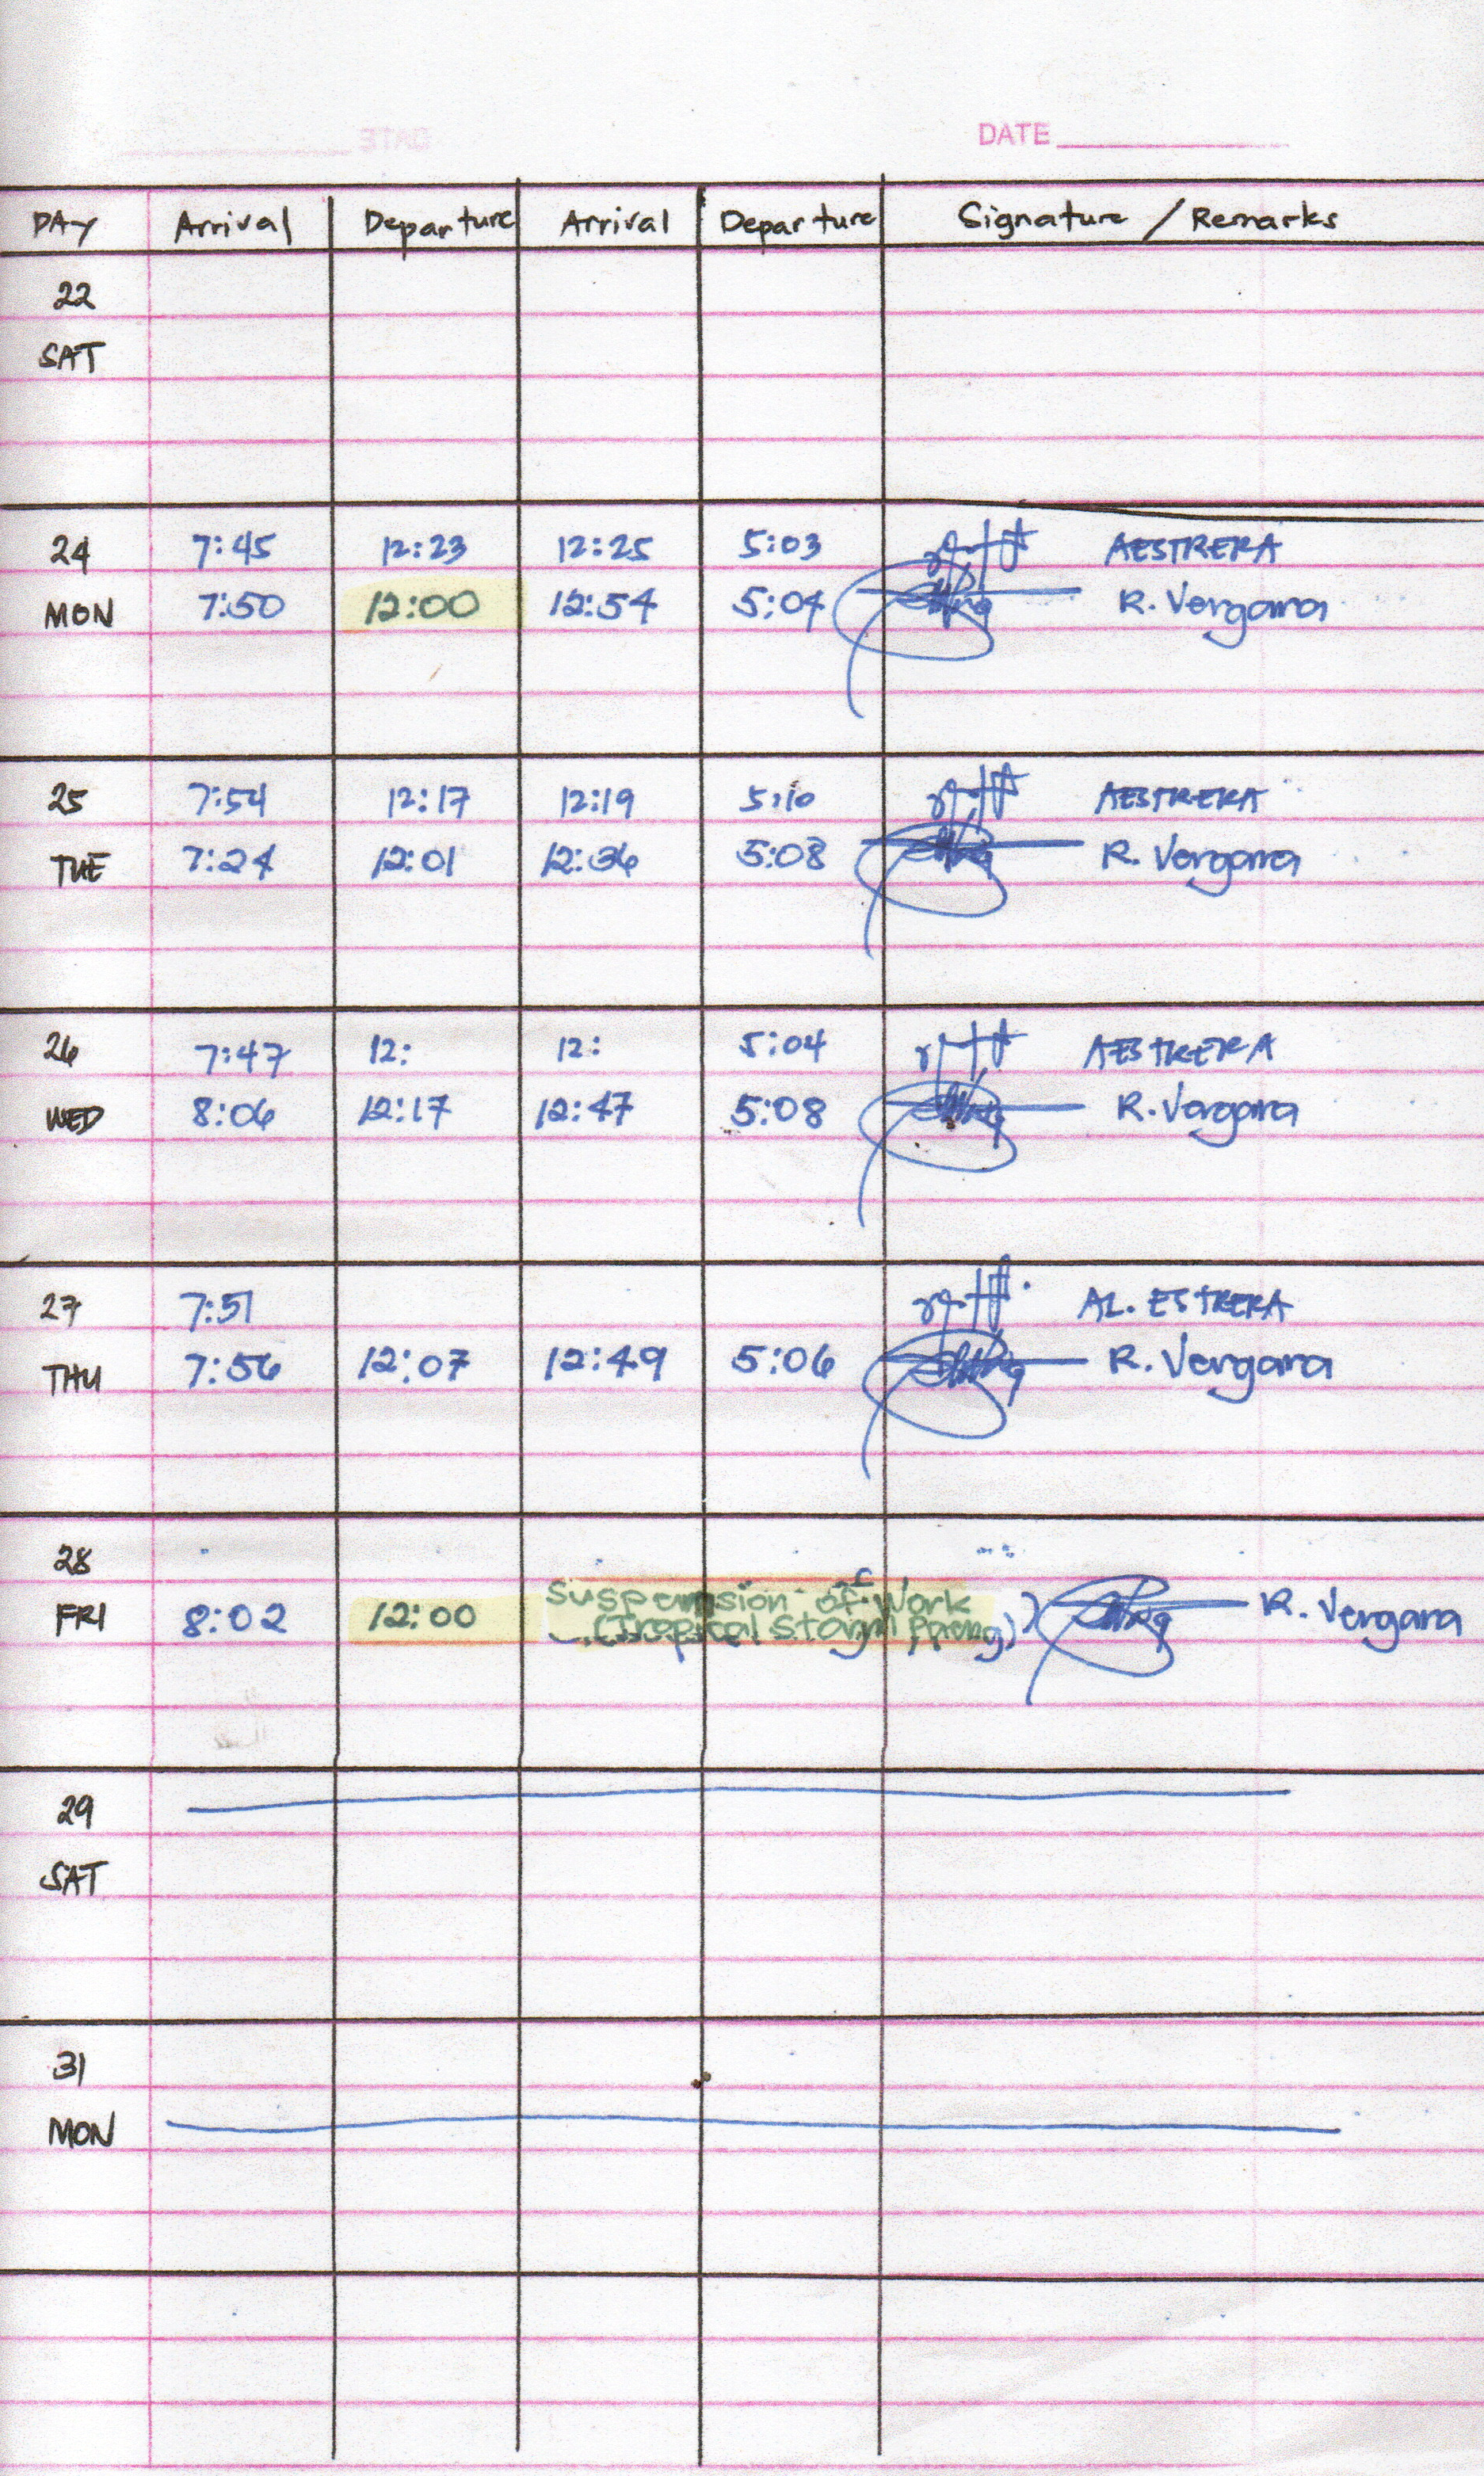 DATE
DAY Arrival Departure Arrival Departure Signature / Remarks
22
SAT
24 7:45 12:23 12:25 5:03 AESTRERA
MON 7:50 12:00 12:54 5:04 R. Vergara
25 7:54 12:17 12:19 5:10 AESTRERA
TUE 7:24 12:01 12:36 5:08 R. Vergara
26 7:47 12: 12: 5:04 AESTRERA
WED 8:06 12:17 12:47 5:08 R. Vergara
27 7:51 AL. ESTRERA
THU 7:56 12:07 12:49 5:06 R. Vergara
28
Suspension of Work
FRI 8:02 12:00 (Tropical Storm R. Vergara
29
SAT
31
MON